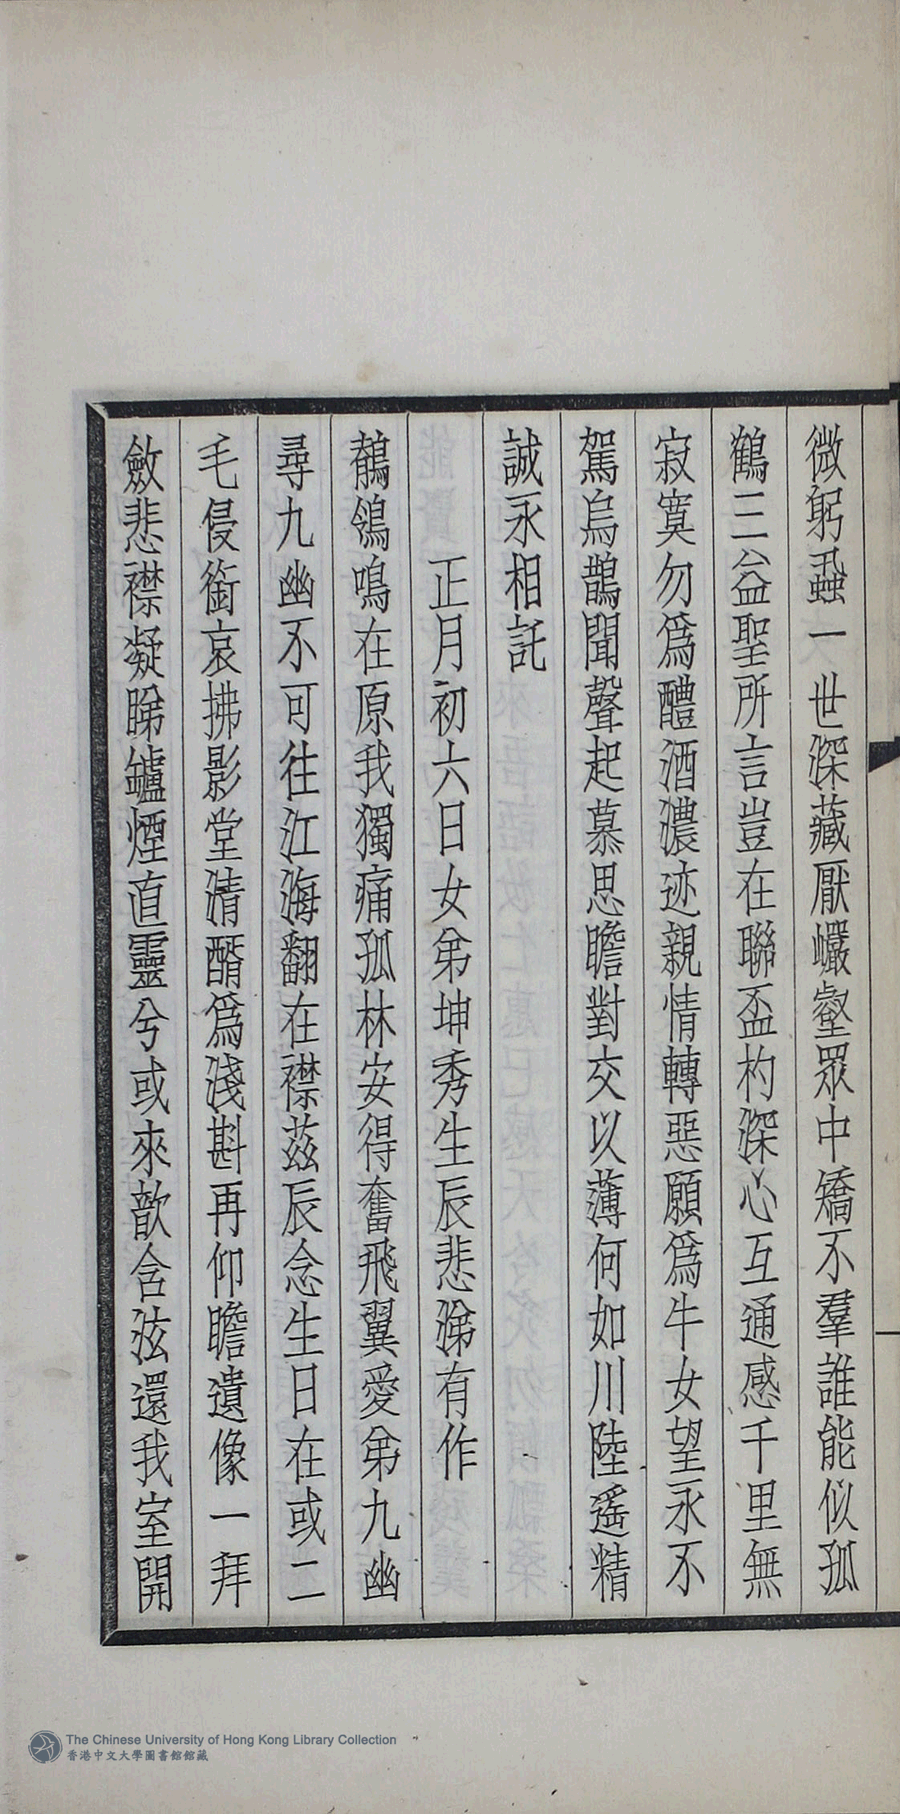 微躬蝨一世深藏厭巉壑眾中矯不羣誰能似孤
鶴三益聖所言豈在聯盃杓深心互通感千里無
寂寞勿爲醴酒濃迹親情轉惡願爲牛女望永不
駕烏鵲聞聲起慕思瞻對交以薄何如川陸遙精
誠永相託
正月初六日女弟坤秀生辰悲涕有作
鶺鴒鳴在原我獨痛孤林安得奮飛翼愛弟九幽
尋九幽不可往江海翻在襟茲辰念生日在或二
毛侵銜哀拂影堂清醑爲淺斟再仰瞻遺像一拜
斂悲襟凝睇鑪煙直靈兮或來歆含泫還我室開
The Chinese University of Hong Kong Library Collection
香港中文大學圖書館館藏